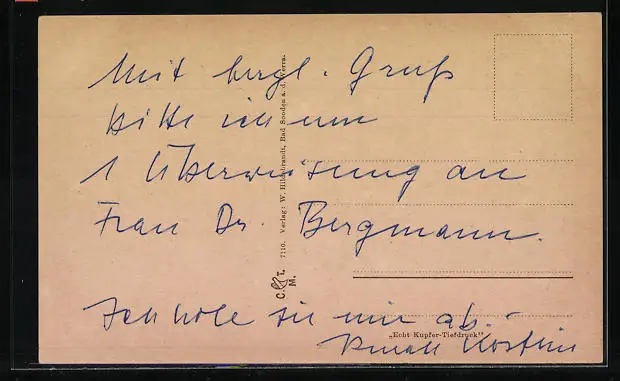 Mit bergl. Gruß
bitte ich um
1 Überweisung an
Frau Dr. Bergmann.
Ich hole sie mir ab.
7110. Verlag: W. Hildebrandt, Bad Sooden a. d. Werra.
C. & L.
M.
„Echt Kupfer-Tiefdruck"